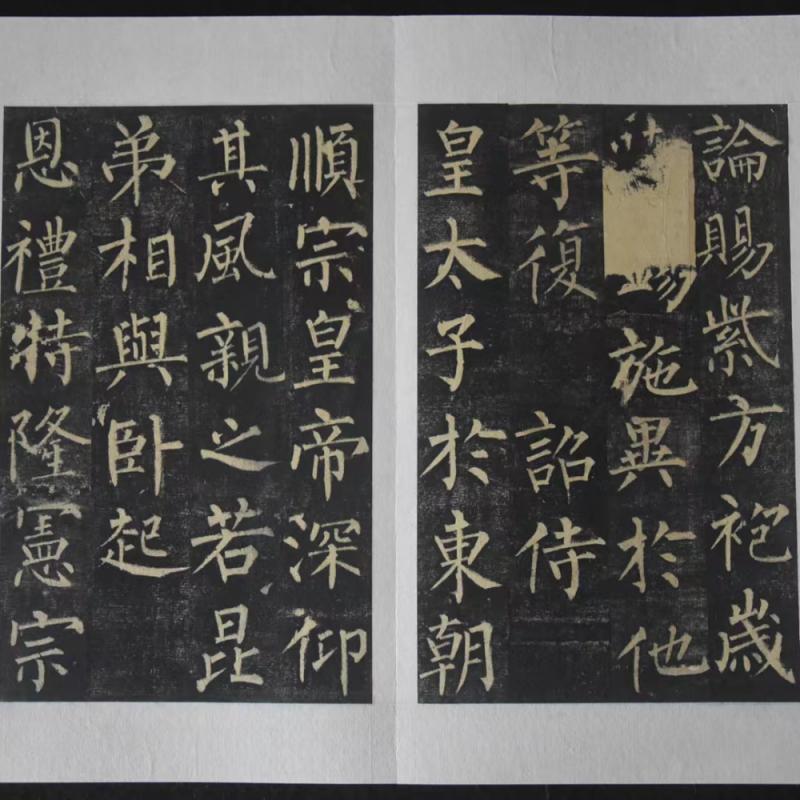 論賜紫方袍歲
施異於他
等復詔侍
皇太子於東朝
順宗皇帝深仰
其風親之若昆
弟相與卧起
恩禮特隆憲宗